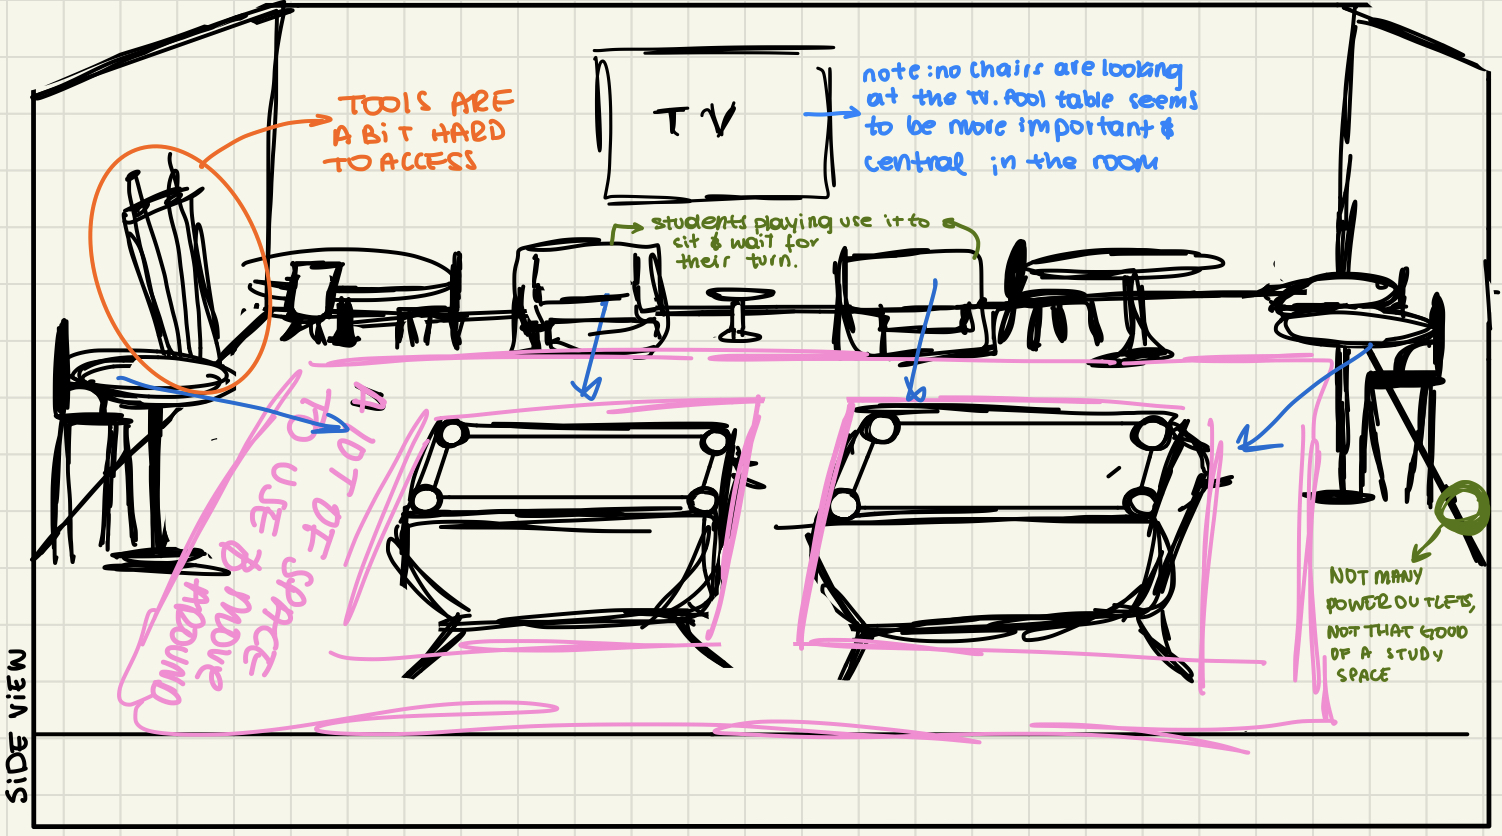 TOOLS ARE
A BIT HARD
TO ACCESS
TV
note: no chairs are looking
at the TV. Pool table seems
to be more important &
central in the room
students playing use it to
sit & wait for
their turn.
A LOT OF SPACE
TO USE &
MOVE
AROUND
NOT MANY
POWER OUTLETS,
NOT THAT GOOD
OF A STUDY
SPACE
SIDE VIEW